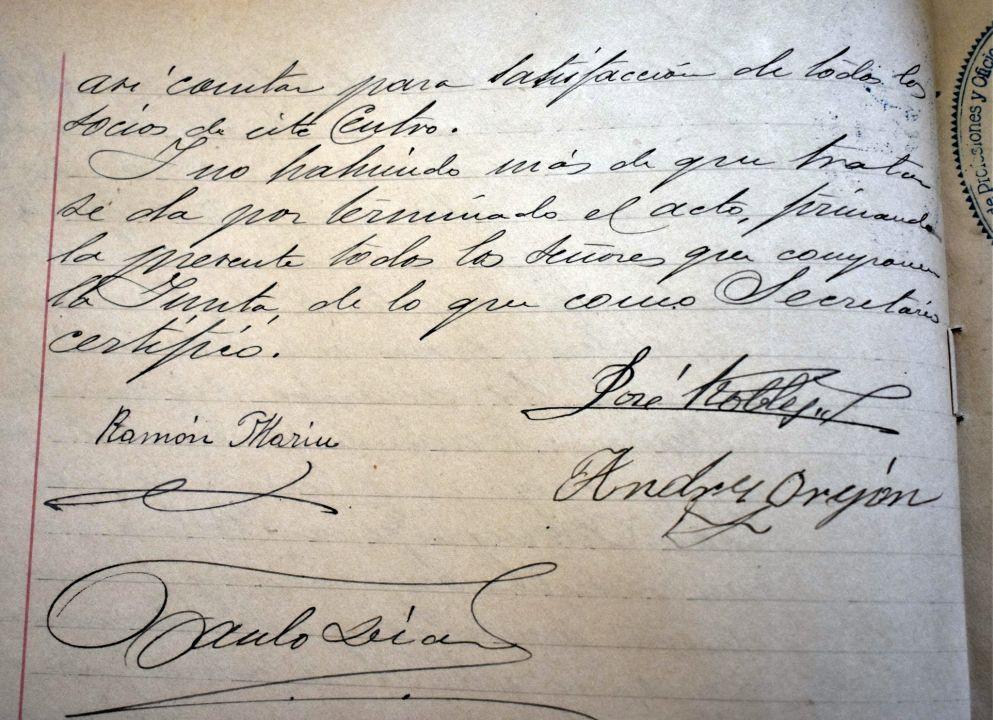 así constar para satisfacción de todos los
socios de este Centro.
Y no habiendo más de que tratar
se da por terminado el acto, firmando
la presente todos los señores que componen
la Junta, de lo que como Secretario
certífico.
José Robles
Ramón Marin
Andrés Orejón
Paulo Leza
de Profesiones y Oficios